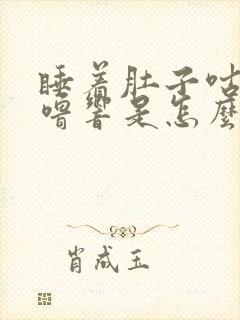 睡着肚子咕
噜响是怎麼
肖成玉